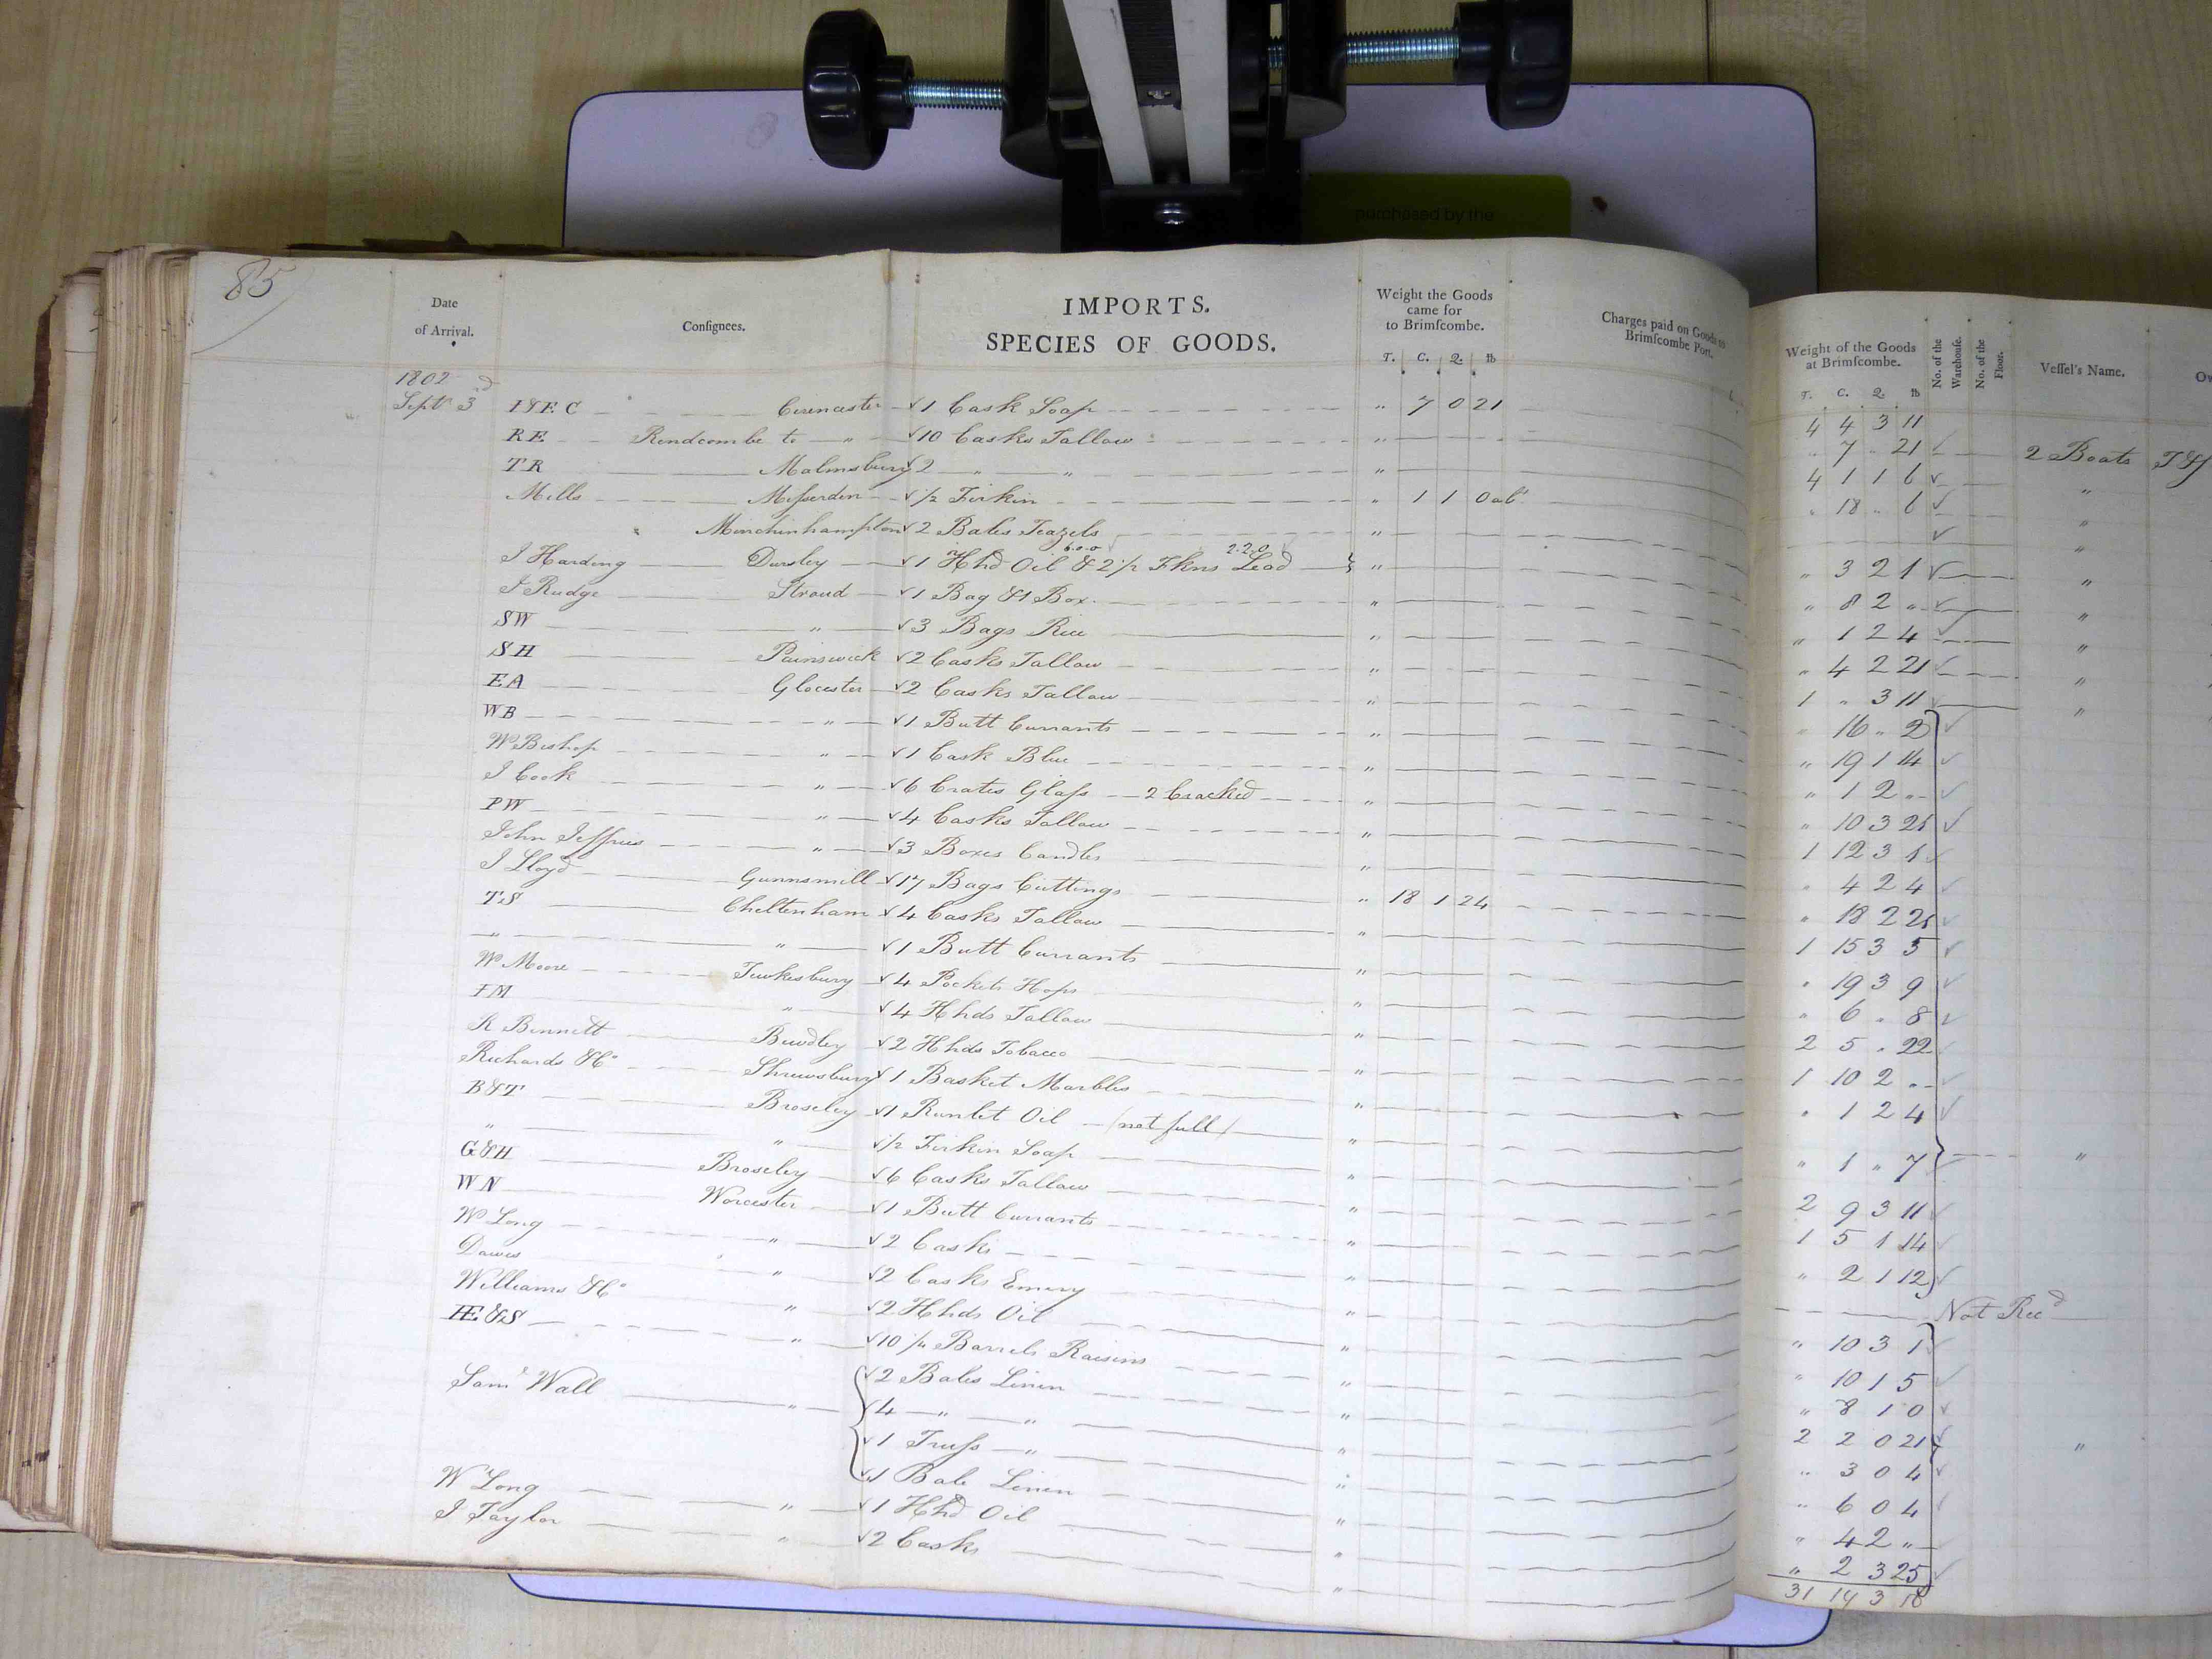 purchased by the
85
Date of Arrival. Consignees. IMPORTS. SPECIES OF GOODS. Weight the Goods came for to Brimscombe. T. C. Q. lb Charges paid on Goods to Brimscombe Port. Weight of the Goods at Brimscombe. T. C. Q. lb No. of the Warehouse. No. of the Floor. Vessel's Name.
4 4 3 11
1802
Sept 3d I&EC Cirencester 1 Cask Soap " 7 0 21 " 7 " 21 2 Boats
RE Rendcombe to " 10 Casks Tallow " 4 1 1 6 "
TR Malmsbury 2 " " " " 18 " 6 "
Mills Misserden 1/2 Firkin " 1 1 0 abt "
Minchinhampton 2 Bales Teazels " " 3 2 1 "
6.0.0 2.2.0
I Harding Dursley 1 Hhd Oil & 2 1/2 Fkns Lead " " 8 2 " "
I Rudge Stroud 1 Bag & 1 Box " " 1 2 4 "
SW " 3 Bags Rice " " 4 2 21 "
SH Painswick 2 Casks Tallow " 1 " 3 11 "
EA Glocester 2 Casks Tallow " " 16 " 2
WB " 1 Butt Currants " " 19 1 14
Wm Bishop " 1 Cask Blue " " 1 2 "
I Cook " 6 Crates Glass 2 Cracked " " 10 3 25
PW " 4 Casks Tallow " 1 12 3 1
John Jeffries " 3 Boxes Candles " " 4 2 4
I Lloyd Gunnsmill 17 Bags Cuttings " 18 1 24 " 18 2 25
TS Cheltenham 4 Casks Tallow " 1 15 3 5
" " 1 Butt Currants " " 19 3 9
Wm Moore Tewkesbury 4 Pockets Hops " " 6 " 8
IM " 4 Hhds Tallow " 2 5 " 22
R Bennett Bewdley 2 Hhds Tobacco " 1 10 2 "
Richards & Co Shrewsbury 1 Basket Marbles " " 1 2 4
B&T Broseley 1 Runlet Oil (not full) "
" " 1/2 Firkin Soap " " 1 " 7 "
G&H Broseley 6 Casks Tallow " 2 9 3 11
WN Worcester 1 Butt Currants " 1 5 1 14
Wm Long " 2 Casks " " 2 1 12
Dawes " 2 Casks Emery " Not Recd
Williams & Co " 2 Hhds Oil " " 10 3 1
HE&S " 10 1/4 Barrels Raisins " " 10 1 5
Saml Wall " 2 Bales Linen " " 8 1 0
4 " " " 2 2 0 21 "
1 Truss " " " 3 0 4
1 Bale Linen " " 6 0 4
W Long " 1 Hhd Oil " " 4 2 "
I Taylor " 2 Casks " " 2 3 25
31 14 3 18